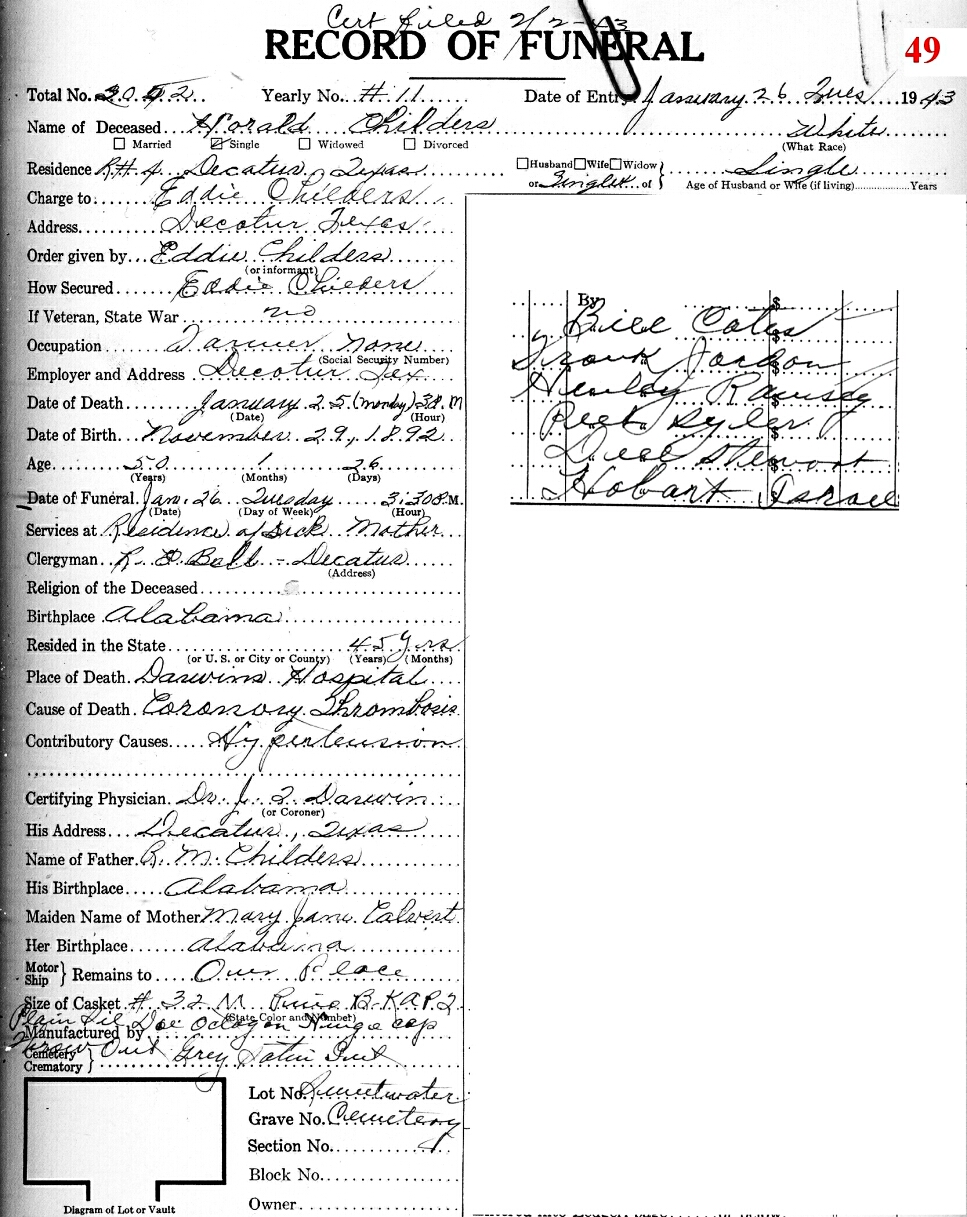 Cert filed 2/2-43
RECORD OF FUNERAL
49
Total No. Yearly No. #11 Date of Entry January 26 Tues 1943
Name of Deceased Horald Childers White
Married Single Widowed Divorced (What Race)
Residence R#4 Decatur, Texas Husband Wife Widow Single
or Single of Age of Husband or Wife (if living) Years
Charge to Eddie Childers
Address Decatur Texas
Order given by Eddie Childers
(or informant)
How Secured Eddie Childers
If Veteran, State War no
Occupation Farmer None
(Social Security Number)
Employer and Address Decatur Tex
Date of Death January 25 (Monday) M
(Date) (Hour)
Date of Birth November 29, 1892
Age 50 1 26
(Years) (Months) (Days)
Date of Funeral Jan. 26 Tuesday 3:30 P.M.
(Date) (Day of Week) (Hour)
Services at Residence of Mother
Clergyman Ball - Decatur
(Address)
Religion of the Deceased
Birthplace Alabama
Resided in the State 45 yrs
(or U. S. or City or County) (Years) (Months)
Place of Death Darwins Hospital
Cause of Death Coronory Thrombosis
Contributory Causes Hypertension
Certifying Physician Dr. J. Darwin
(or Coroner)
His Address Decatur, Texas
Name of Father R. M. Childers
His Birthplace Alabama
Maiden Name of Mother Mary Jane Calvert
Her Birthplace Alabama
Motor Ship } Remains to Our Place
Size of Casket # 32 M
(State Color and Number)
Plain Sil Doe Octogon Hinge cap
Manufactured by
Cemetery Crematory } Grey Satin Int
Lot No. Sweetwater
Grave No. Cemetery
Section No.
Block No.
Owner
Diagram of Lot or Vault
By $
Bill Cates $
Frank Jordon $
Henley Ramsey $
Peek Syler $
Stewart $
Hobart Israel